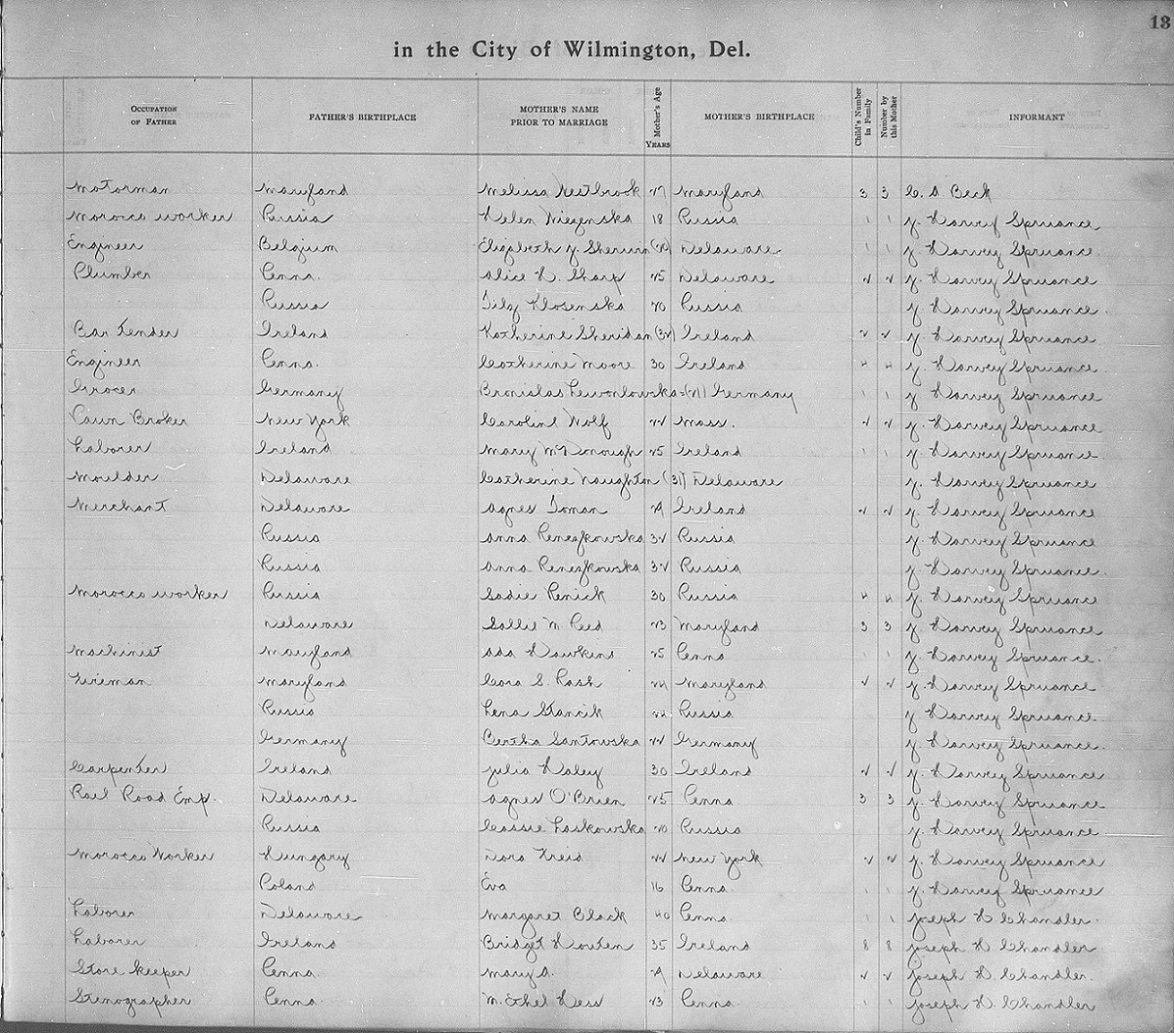 13
in the City of Wilmington, Del.
OCCUPATION OF FATHER FATHER'S BIRTHPLACE MOTHER'S NAME PRIOR TO MARRIAGE Mother's Age YEARS MOTHER'S BIRTHPLACE Child's Number in Family Number by this Mother INFORMANT
Motorman Maryland Melissa Westbrook 27 Maryland 3 3 C. A. Beck
Morocco worker Russia Helen 18 Russia 1 1 J. Harvey Spruance
Engineer Belgium Elizabeth J. Delaware. 1 1 J. Harvey Spruance.
Plumber Penna. Alice H. Sharp 25 Delaware 2 2 J. Harvey Spruance
Russia 20 Russia J. Harvey Spruance.
Bar Tender Ireland Katherine Sheridan (32) Ireland 2 2 J. Harvey Spruance
Engineer Penna. Catherine Moore 30 Ireland 4 4 J. Harvey Spruance
Grocer Germany Bronislas Germany 1 1 J. Harvey Spruance
Pawn Broker New York Caroline Wolf 22 Mass. 2 2 J. Harvey Spruance
Laborer Ireland Mary McDonough 25 Ireland 1 1 J. Harvey Spruance.
Moulder Delaware Catherine Naughton (31) Delaware J. Harvey Spruance
Merchant Delaware Agnes Toman Ireland 2 2 J. Harvey Spruance
Russia Anna 32 Russia J. Harvey Spruance
Russia Anna 32 Russia J. Harvey Spruance.
Morocco worker Russia Sadie Penick 30 Russia 4 4 J. Harvey Spruance
Delaware Sallie M. Reed 23 Maryland 3 3 J. Harvey Spruance
Machinist Maryland Ada Hawkins 25 Penna 1 1 J. Harvey Spruance.
Fireman Maryland Cora S. Rash 24 Maryland 2 2 J. Harvey Spruance
Russia Lena Stancik 22 Russia J. Harvey Spruance
Germany Bertha Santowska 22 Germany J. Harvey Spruance.
Carpenter Ireland Julia Haley 30 Ireland 2 2 J. Harvey Spruance
Rail Road Emp. Delaware Agnes O'Brien 25 Penna 3 3 J. Harvey Spruance
Russia Cassie Laskowska 20 Russia J. Harvey Spruance
Morocco Worker Hungary Dora Freid 22 New York 2 2 J. Harvey Spruance
Poland Eva 16 Penna. 1 1 J. Harvey Spruance
Laborer Delaware Margaret Black 40 Penna. 1 1 Joseph H. Chandler.
Laborer Ireland Bridget Houten 35 Ireland 8 8 Joseph H. Chandler
Store keeper Penna. Mary A. Delaware 2 2 Joseph H. Chandler.
Stenographer Penna. M. Ethel Hess 23 Penna 1 1 Joseph H. Chandler